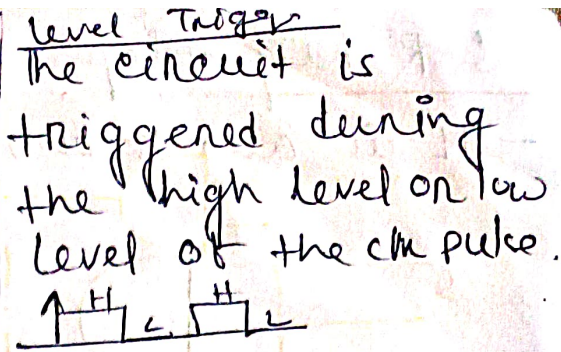 Level Triger
The circuit is
triggered during
the high level or low
Level of the clk pulse.
H L H L